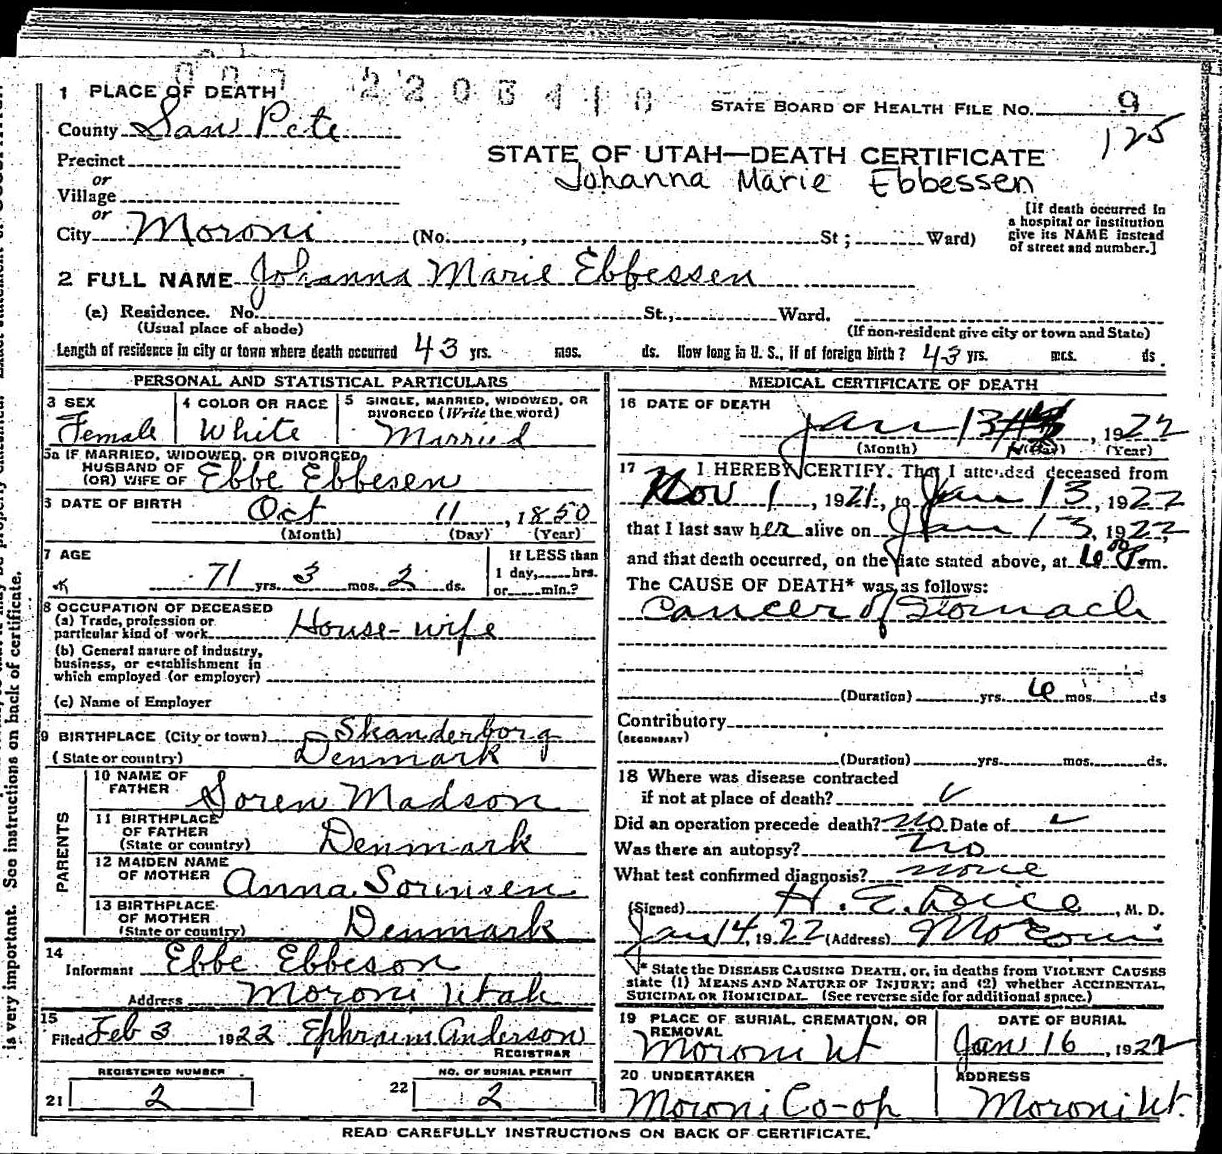 1 PLACE OF DEATH
STATE BOARD OF HEALTH FILE NO. 9
County San Pete
125
Precinct
STATE OF UTAH—DEATH CERTIFICATE
or
Johanna Marie Ebbessen
Village
or
[If death occurred in
a hospital or institution
give its NAME instead
of street and number.]
City Moroni (No. , St ; Ward)
2 FULL NAME Johanna Marie Ebbessen
(a) Residence. No. St., Ward.
(Usual place of abode) (If non-resident give city or town and State)
Length of residence in city or town where death occurred 43 yrs. mos. ds. How long in U. S., if of foreign birth ? 43 yrs. mcs. ds
PERSONAL AND STATISTICAL PARTICULARS
3 SEX
Female
4 COLOR OR RACE
White
5 SINGLE, MARRIED, WIDOWED, OR
DIVORCED (Write the word)
Married
5a IF MARRIED, WIDOWED, OR DIVORCED
HUSBAND OF
(OR) WIFE OF Ebbe Ebbesen
6 DATE OF BIRTH Oct 11, 1850
(Month) (Day) (Year)
7 AGE
71 yrs. 3 mos. 2 ds.
If LESS than
1 day, hrs.
or min.?
8 OCCUPATION OF DECEASED
(a) Trade, profession or
particular kind of work House-wife
(b) General nature of industry,
business, or establishment in
which employed (or employer)
(c) Name of Employer
9 BIRTHPLACE (City or town) Skanderborg
(State or country) Denmark
PARENTS
10 NAME OF
FATHER Soren Madson
11 BIRTHPLACE
OF FATHER
(State or country) Denmark
12 MAIDEN NAME
OF MOTHER Anna Sorensen
13 BIRTHPLACE
OF MOTHER
(State or country) Denmark
14
Informant Ebbe Ebbeson
Address Moroni Utah
15
Filed Feb 3 1922 Ephraim Anderson
REGISTRAR
REGISTERED NUMBER
21 2
NO. OF BURIAL PERMIT
22 2
MEDICAL CERTIFICATE OF DEATH
16 DATE OF DEATH
Jan 13, 1922
(Month) (Day) (Year)
17 I HEREBY CERTIFY. That I attended deceased from
Nov 1, 1921, to Jan 13, 1922
that I last saw her alive on Jan 13, 1922
and that death occurred, on the date stated above, at P.m.
The CAUSE OF DEATH* was as follows:
Cancer of Stomach
(Duration) yrs. 6 mos. ds
Contributory
(SECONDARY)
(Duration) yrs. mos. ds.
18 Where was disease contracted
if not at place of death?
Did an operation precede death? no Date of
Was there an autopsy? no
What test confirmed diagnosis? none
(Signed) H. E. , M. D.
Jan 14, 1922 (Address) Moroni
* State the DISEASE CAUSING DEATH, or, in deaths from VIOLENT CAUSES
state (1) MEANS AND NATURE OF INJURY; and (2) whether ACCIDENTAL,
SUICIDAL OR HOMICIDAL. (See reverse side for additional space.)
19 PLACE OF BURIAL, CREMATION, OR
REMOVAL
Moroni Ut
DATE OF BURIAL
Jan 16, 1922
20 UNDERTAKER
Moroni Co-op
ADDRESS
Moroni Ut.
READ CAREFULLY INSTRUCTIONS ON BACK OF CERTIFICATE.
is very important. See instructions on back of certificate.